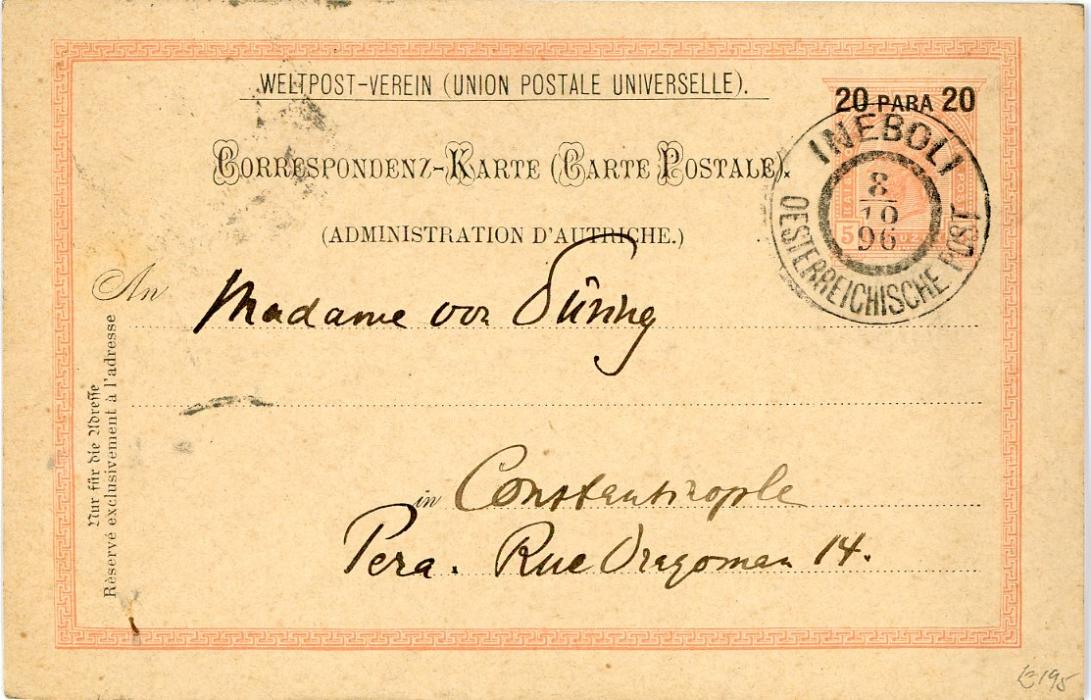 WELTPOST-VEREIN (UNION POSTALE UNIVERSELLE).
20 PARA 20
CORRESPONDENZ-KARTE (CARTE POSTALE).
(ADMINISTRATION D'AUTRICHE.)
INEBOLI
8
10
96
OESTERREICHISCHE POST
An Madame von Düring
in Constantinople
Pera. Rue Dragoman 14.
Nur für die Adresse
Réservé exclusivement à l'adresse